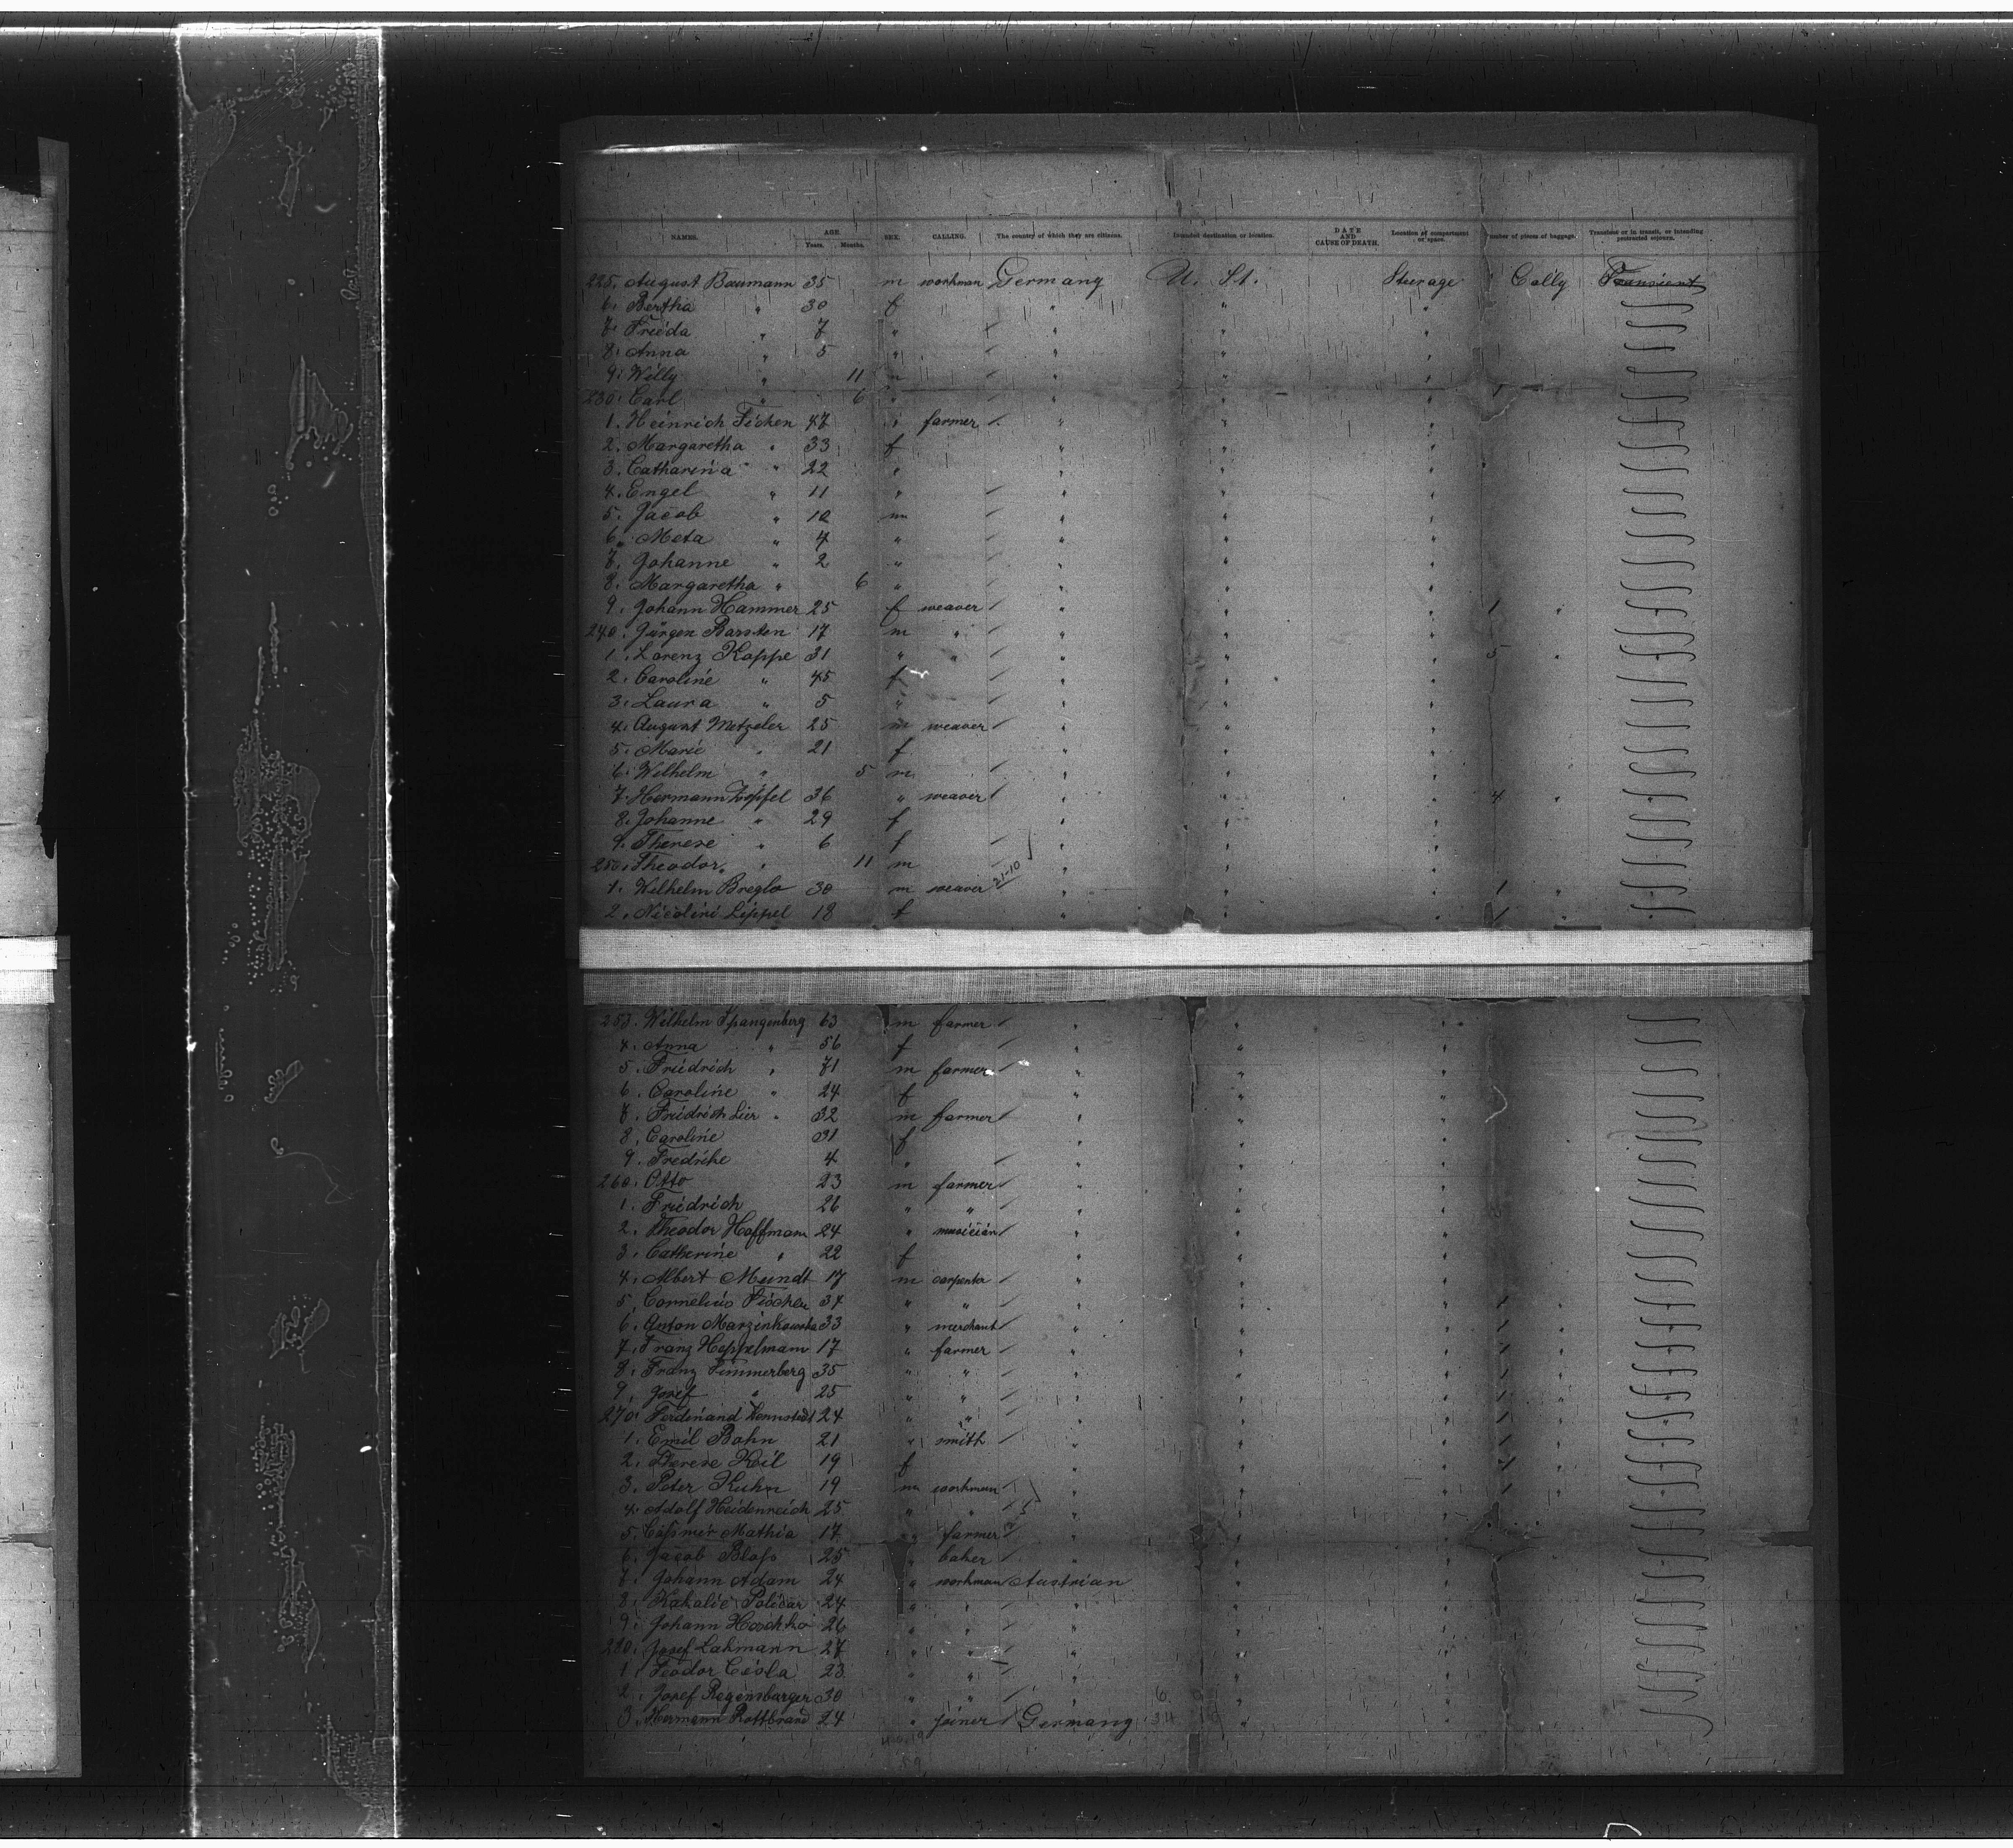 NAMES. AGE Years. Months. SEX. CALLING. The country of which they are citizens. Intended destination or location. DATE AND CAUSE OF DEATH. Location of compartment or space. Number of pieces of baggage. Transient or in transit, or intending protracted sojourn.
225. August Baumann 35 m workman Germany U. St. Steerage Colly Transient
6. Bertha " 30 f " " "
7. Frieda " 7 " " " "
8. Anna " 5 " " " "
9. Willy " 11 m " " "
230. Carl " 6 " " " " 1
1. Heinrich Ficken 47 " farmer " " "
2. Margaretha " 33 f " " "
3. Catharina " 22 " " " "
4. Engel " 11 " " " "
5. Jacob " 10 m " " "
6. Meta " 4 " " " "
7. Johanne " 2 " " " "
8. Margaretha " 6 " " " "
9. Johann Hammer 25 f weaver " " " 1 "
240. Jürgen Barsten 17 m " " " "
1. Lorenz Koppe 31 " " " " " 5 "
2. Caroline " 45 f " " "
3. Laura " 5 " " " "
4. August Metzeler 25 m weaver " " "
5. Marie " 21 f " " "
6. Wilhelm " 5 m " " "
7. Hermann Töpfel 36 " weaver " " " 4 "
8. Johanne " 29 f " " "
9. Therese " 6 f " " "
250. Theodor " 11 m " " "
1. Wilhelm Breglo 30 m weaver 21-10 " " " 1 "
2. Nicolini Lippel 18 f " " " 1 "
253. Wilhelm Spangenberg 63 m farmer " " "
4. Anna " 56 f " " "
5. Friedrich " 71 m farmer " " "
6. Caroline " 24 f " " "
7. Friedrich Lier " 32 m farmer " " "
8. Caroline 31 f " " "
9. Fredrike 4 " " " "
260. Otto 23 m farmer " " "
1. Friedrich 26 " " " " "
2. Theodor Hoffmann 24 " musician " " "
3. Catherine " 22 f " " "
4. Albert Mundt 17 m carpenter " " "
5. Cornelius Fischer 37 " " " " " 1 "
6. Anton Marzinkowska 33 " merchant " " " 1 "
7. Franz Heppelmann 17 " farmer " " " 1 "
8. Franz Timmerberg 35 " " " " " 1 "
9. Josef " 25 " " " " " 1 "
270. Ferdinand Hennstedt 24 " " " " " 1 "
1. Emil Bohn 21 " smith " " " 1 "
2. Therese Keil 19 f " " " 1 "
3. Peter Kuhn 19 m workman " " " 1 "
4. Adolf Heidenreich 25 " " " " "
5. Casimir Mathia 17 " farmer " " "
6. Jacob Blass 25 " baker " " "
7. Johann Adam 24 " workman Austrian " "
8. Kakalic Policar 24 " " " " "
9. Johann Hoschko 26 " " " " "
280. Josef Lahmann 27 " " " " "
1. Teodor Ciola 23 " " " " "
2. Josef Regensbarger 30 " " " " "
3. Hermann Rottbrand 24 " joiner Germany " "
59